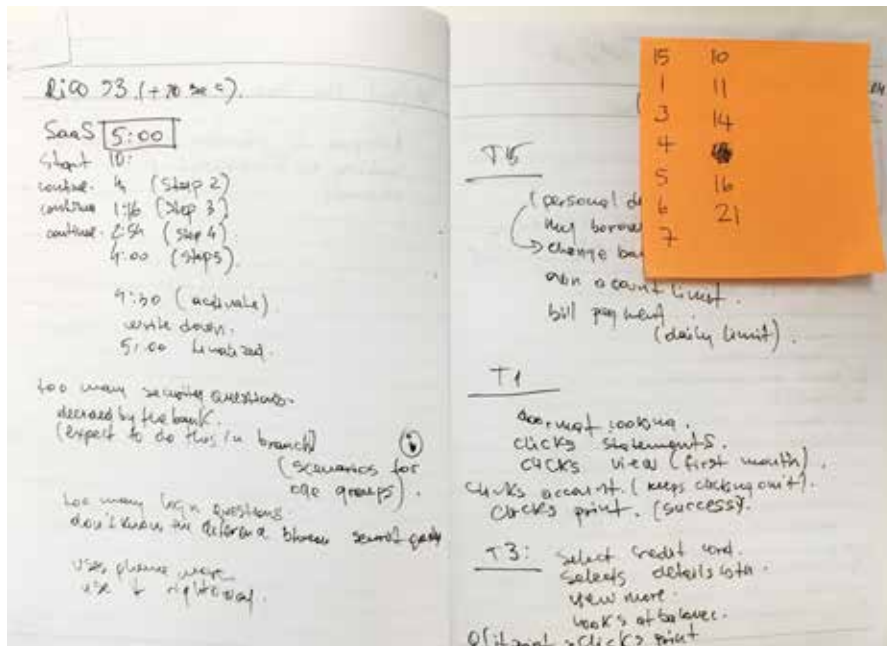 SaaS 5:00
Start 10:
continue. (Step 2)
continue 1:16 (Step 3)
continue. 2:54 (Step 4)
4:00 (Step5)
4:30 (activate)
write down.
5:00 finalized.
too many security questions.
by the bank.
(expect to do this in branch)
(scenarios for
age groups).
too many login questions
don't know the
uses phone
use
15 10
1 11
3 14
4
5 16
6 21
7
T15
(personal
my
change
account limit.
bill payment
(daily limit).
T1
looking.
clicks statements.
clicks view (first month).
clicks account. (keeps clicking on it).
clicks print. (success).
T3: Select credit card.
selects details
view more.
looks at balance.
clicks print